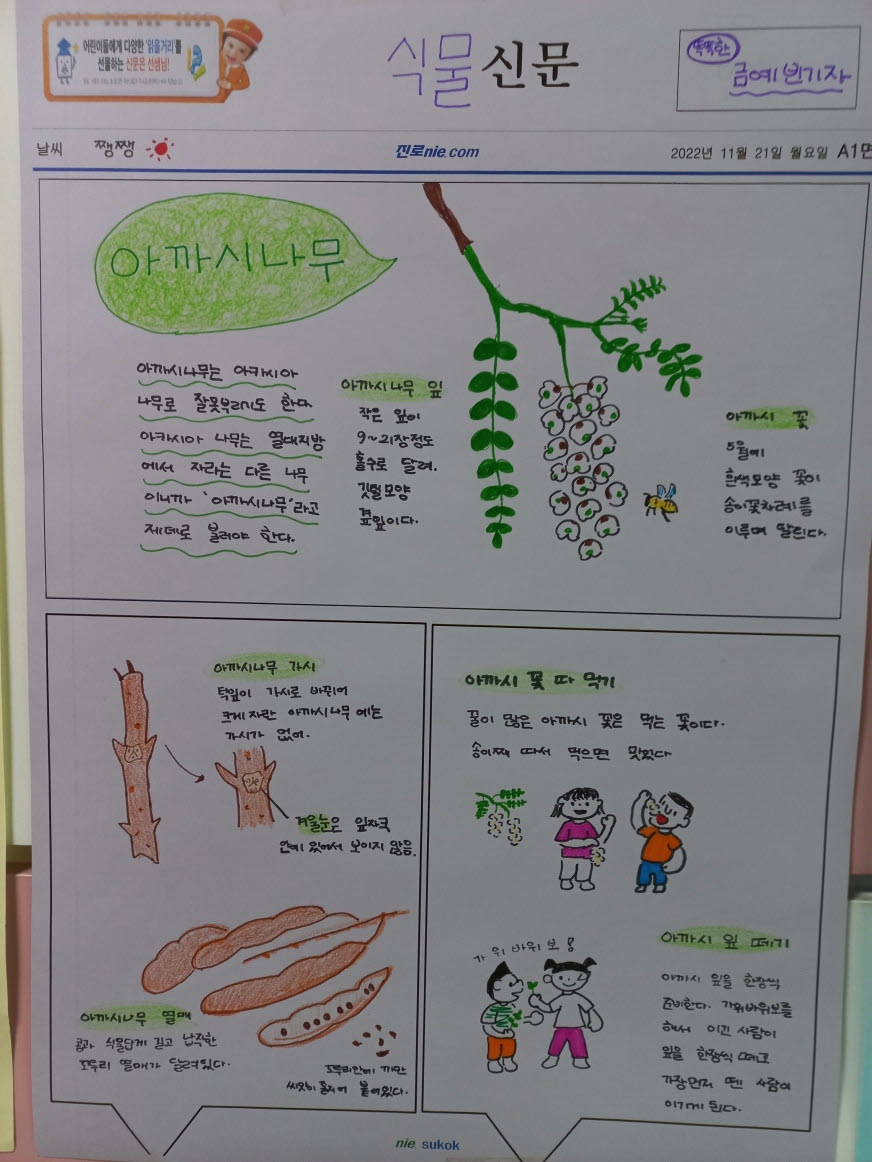 어린이들에게 다양한 '읽을거리'를
선물하는 신문은 선생님!
식물신문
똑똑한
금예빈기자
날씨 쨍쨍
진로nie.com
2022년 11월 21일 월요일 A1면
아까시나무
아까시나무는 아카시아
나무로 잘못부르기도 한다.
아카시아 나무는 열대지방
에서 자라는 다른 나무
이니까 '아까시나무'라고
제데로 불러야 한다.
아까시나무 잎
작은 잎이
9~21장정도
홀수로 달려.
깃털모양
겹잎이다.
아까시 꽃
5월에
흰색모양 꽃이
송이꽃차례를
이루며 딸린다.
아까시나무 가시
턱잎이 가시로 바뀌어
크게 자란 아까시나무 에는
가시가 없어.
겨울눈은 잎자국
안에 있어서 보이지 않음.
아까시나무 열매
콩과 식물답게 길고 납작한
꼬투리 열매가 달려있다.
꼬투리안에 까만
씨앗이 붙어있다.
아까시 꽃 따 먹기
꿀이 많은 아까시 꽃은 먹는 꽃이다.
송이째 따서 먹으면 맛있다
가위바위보!
아까시 잎 떼기
아까시 잎을 한장씩
준비한다. 가위바위보를
해서 이긴 사람이
잎을 한장씩 떼고
가장먼저 뗀 사람이
이기게 된다.
nie. sukok